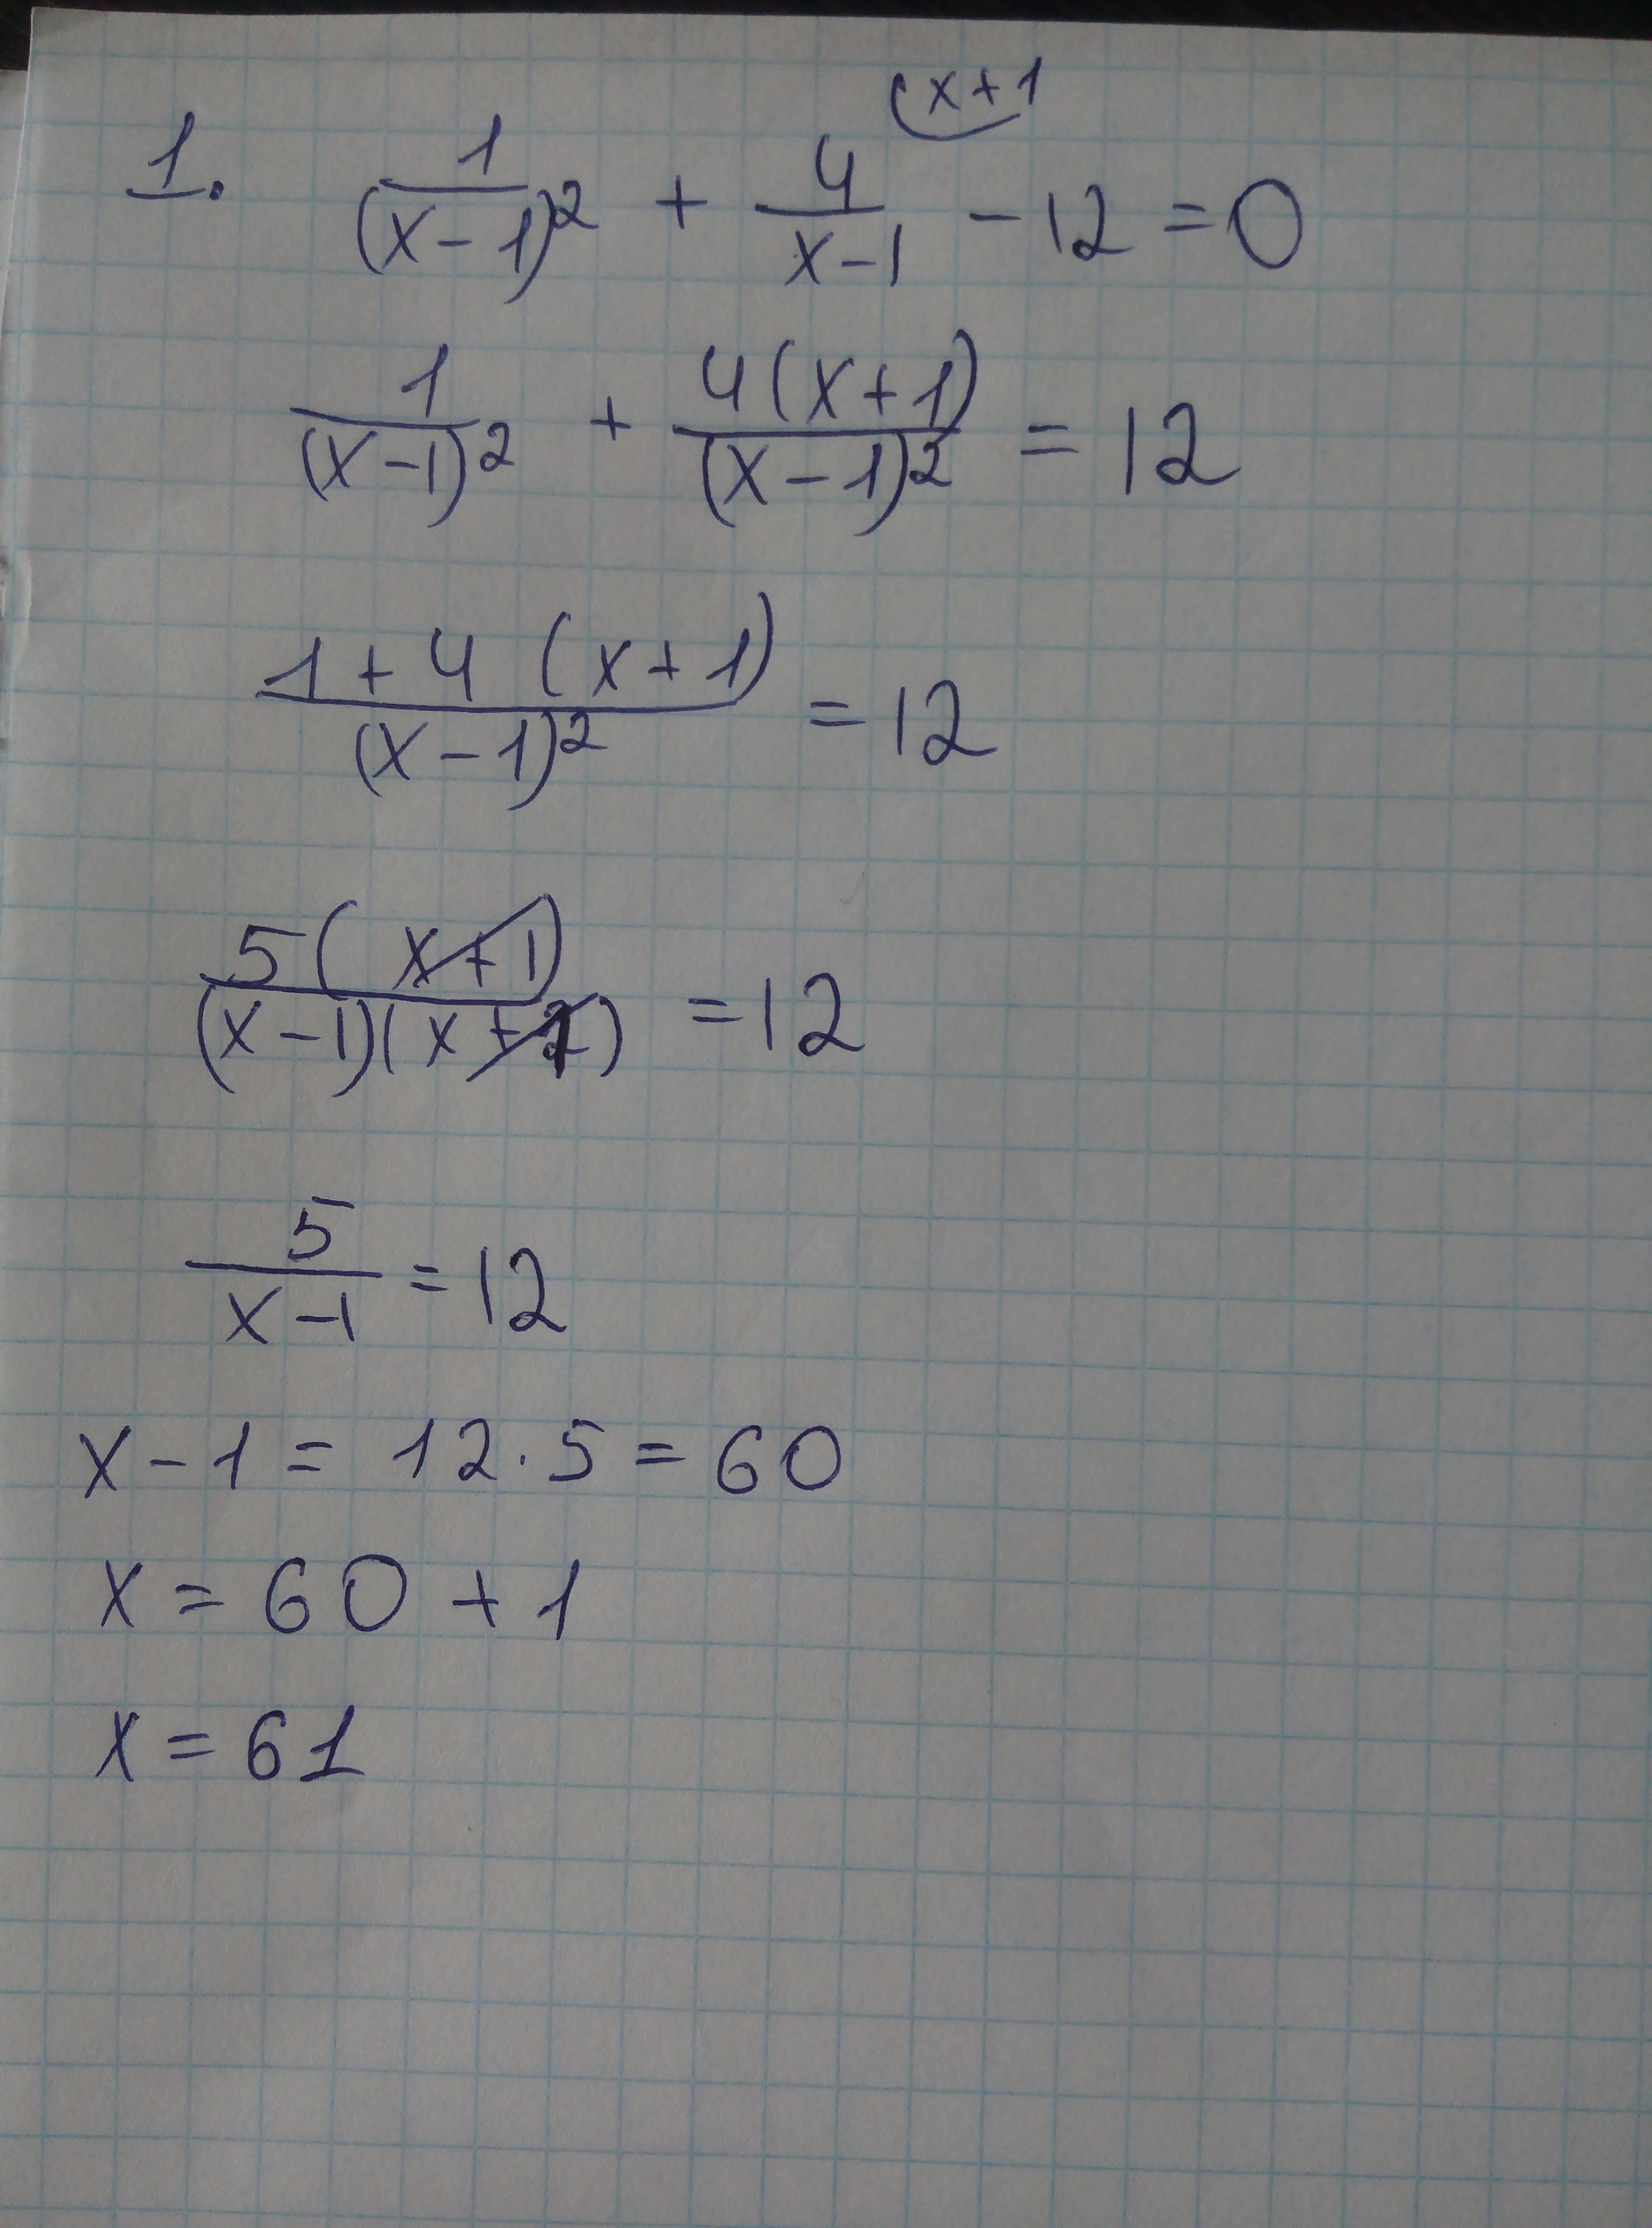 x+1
1. 1/(x-1)² + 4/x-1 - 12 = 0
1/(x-1)² + 4(x+1)/(x-1)² = 12
1+4(x+1)/(x-1)² = 12
5(x+1)/(x-1)(x+1) = 12
5/x-1 = 12
x-1 = 12·5 = 60
x = 60 + 1
x = 61